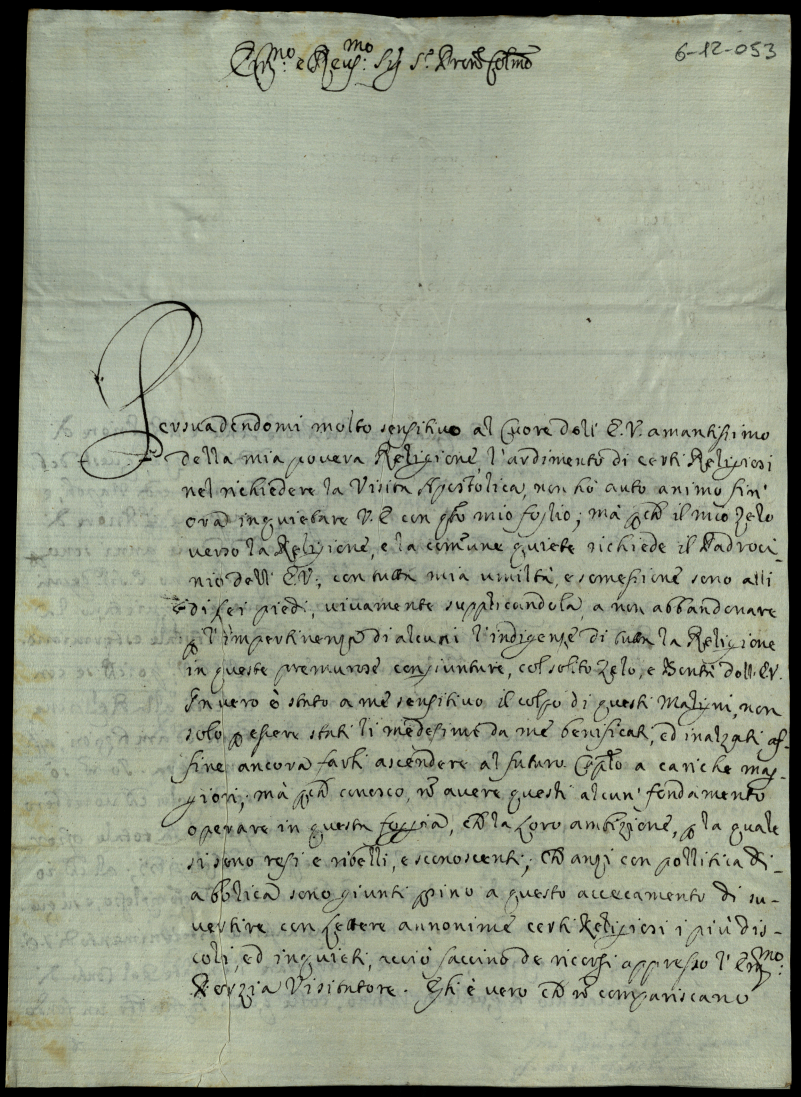 6-12-053
Em.mo e Reu.mo Sig. S.r Pron Colmo
Persuadendomi molto sensitivo al Cuore dell' E.V. amantissimo
della mia povera Religione l'ardimento di certi Religiosi
nel richiedere la Visita Apostolica, non hò auto animo fin'
ora d'inquietare V.E. con qto mio foglio; mà pche il mio zelo
verso la Religione, e la comune quiete richiede il Padroci-
nio dell' E.V., con tutta mia umiltà, e somessione sono alli
di Lei piedi, vivamente supplicandola, a non abbandonare
p l'impertinenza di alcuni l'indigenze di tutta la Religione
in queste premurose congiunture, col solito zelo, e Bontà dell' E.V.
In vero è stato a me sensitivo il colpo di questi Maligni, non
solo p essere stati li medesimi da me benificati, ed inalzati, af-
fine ancora farli ascendere al futuro Caplo a cariche mag-
giori; mà pche conosco, nō avere questi alcun' fondamento
operare in questa foggia, che la Loro ambizione, p la quale
si sono resi e ribelli, e sconoscenti; che anzi con pollitica di-
abblica sono giunti pfino a questo accecamento di su-
vertire con Lettere annonime certi Religiosi i più dis-
coli, ed inquieti, acciò faccino de ricorsi appresso l' Em.mo
Porzia Visitatore. Egli è vero che nō compariscano